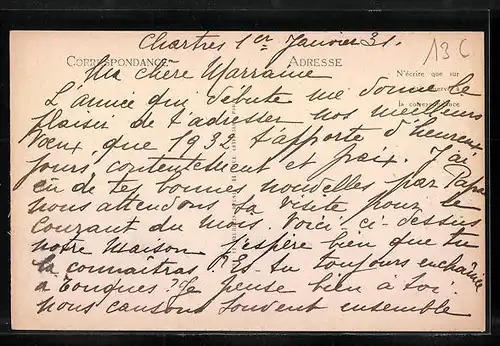 Chartres 1er Janvier 31.
13 C
CORRESPONDANCE
ADRESSE
Ma chère Marraine
N'écrire que sur
L'année qui débute me donne le
plaisir de t'adresser nos meilleurs
la correspondance
Vœux que 1932 t'apporte d'heureux
jours, contentement et paix. J'ai
eu de tes bonnes nouvelles par Papa
nous attendons ta visite pour le
courant du mois. Voici ci-dessus
notre maison j'espère bien que tu
la connaîtras ! Es-tu toujours enchaînée
à Touques ? Je pense bien à toi.
nous causons souvent ensemble